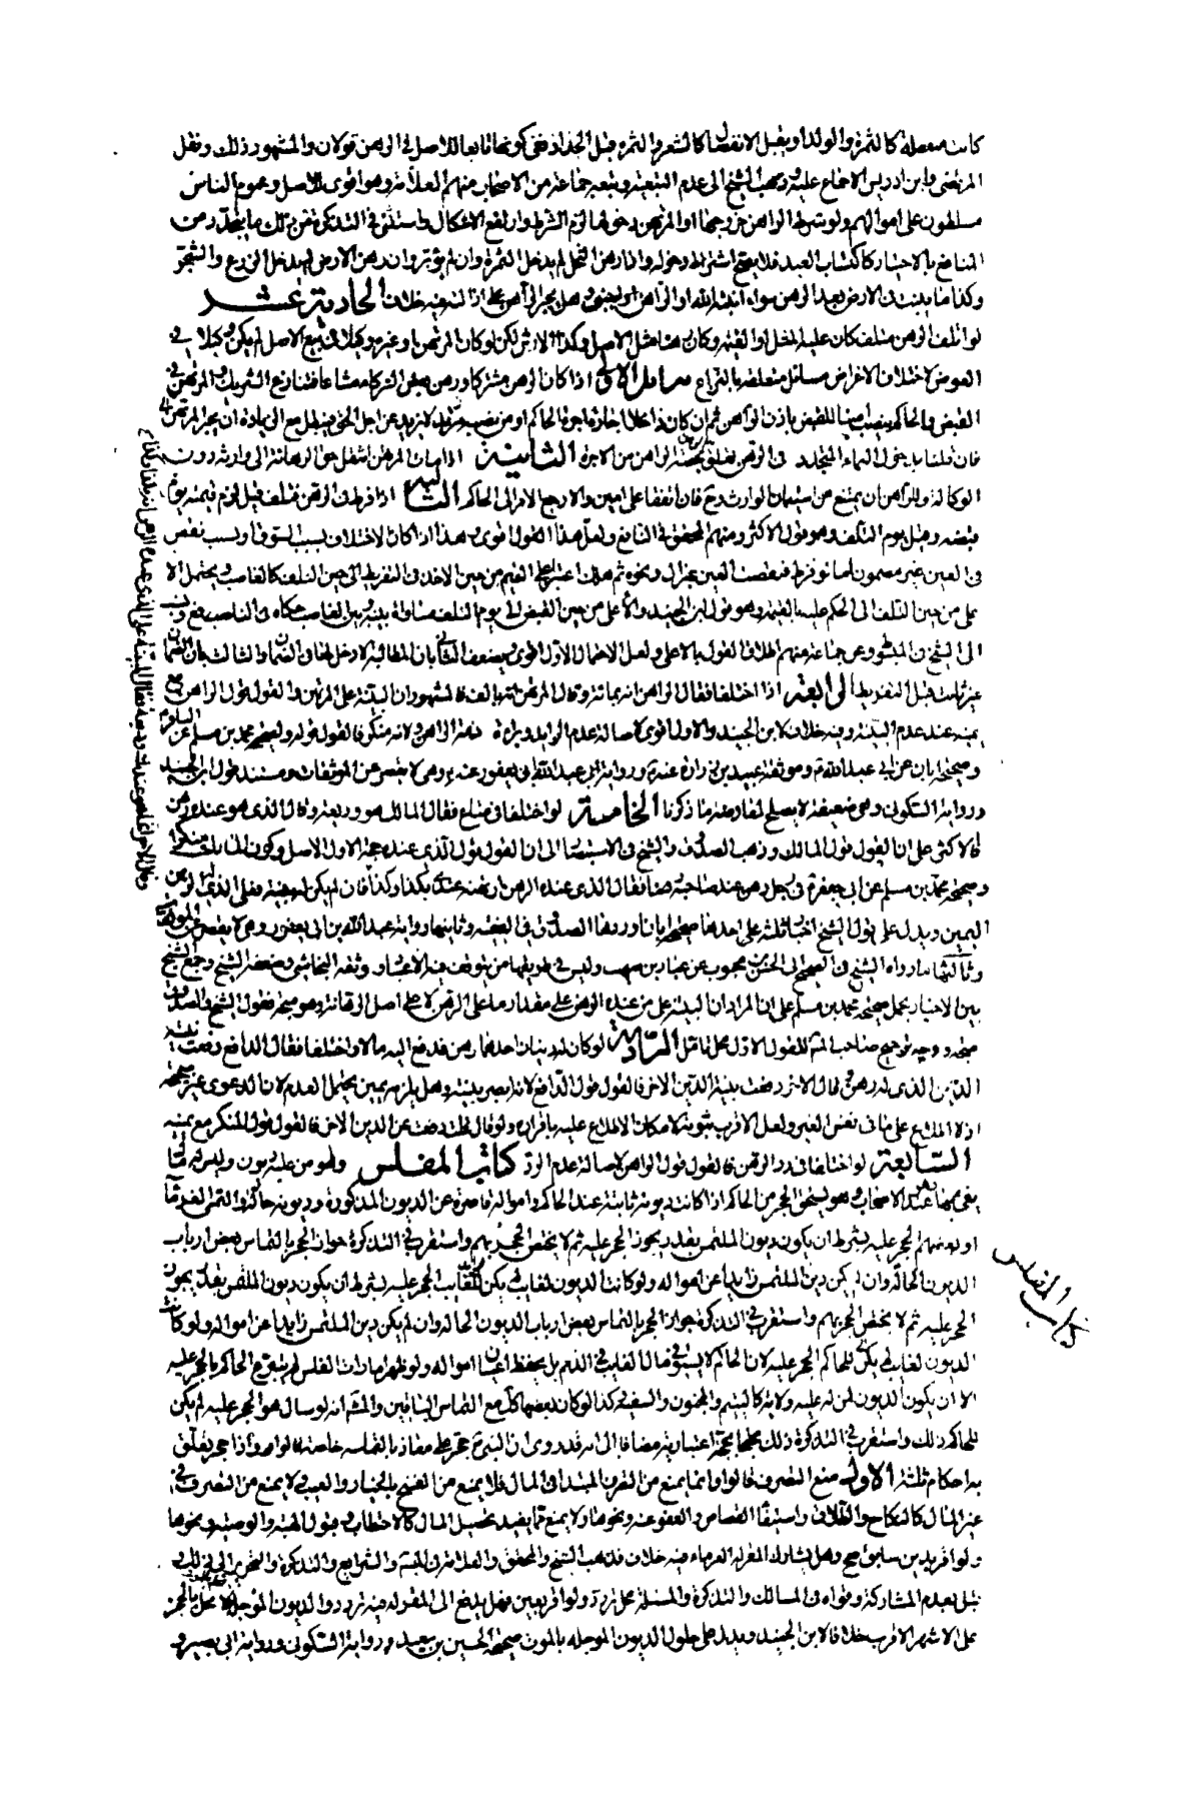 كانت منفصلة كالثمرة والولد او يقبل الانفصال كالشعر والثمرة قبل الجذاذ ففي كونها تابعا للاصل في الرهن قولان والمشهور ذلك ونقل
المرتضى وابن ادريس الاجماع عليه وذهب الشيخ الى عدم التبعية وتبعه جماعة من الاصحاب منهم العلامة وهو اقوى للاصل وعموم الناس
مسلطون على اموالهم ولو شرط الراهن خروجها او المرتهن دخولها لزم الشرط وارتفع الاشكال واستثنى في التذكرة من ذلك ما يتجدد من
المنافع بالاختيار كاكتساب العبد فلا يصح اشتراط دخوله واذا رهن النخل لم يدخل الثمرة وان لم يؤبر وان رهن الارض لم يدخل الزرع والشجر
وكذا ما ينبت في الارض بعد الرهن سواء انبته الله او الراهن او اجنبي وهل يجبر الراهن على ازالته فيه خلاف الحادية عشر
لو اتلف الرهن متلف كان عليه المثل او القيمة وكان رهنا مثل الاصل وكذا الارش لكن لو كان المرتهن او غيره وكيلا في بيع الاصل لم يكن وكيلا في
العوض لاختلاف الاغراض مسائل متعلقة بالنزاع الاولى اذا كان الرهن مشتركا ورهن بعض الشركاء مشاعا فتنازع الشريك والمرتهن في
القبض فالحاكم ينصب امينا للقبض باذن الراهن ثم ان كان ذا اجرة اجاره الحاكم او من نصبه مدة لا يزيد عن اجل الحق فيبطل مع الزيادة الا ان يجيز المرتهن
فان قلنا بدخول النماء المتجدد في الرهن تعلق بحصة الراهن من الاجرة الثانية اذا مات المرتهن انتقل حق الرهانة الى وارثه دون
الوكالة وللراهن ان يمتنع من استيمان الوارث وح فان اتفقا على امين والا رجع الامر الى الحاكم الثالثة اذا فرط في الرهن فتلف قيل لزم قيمته يوم
قبضه وقيل يوم التلف وهو قول الاكثر ومنهم المحقق في النافع ولعل هذا القول اقوى وهذا اذا كان الاختلاف بسبب السوق او بسبب نقص
في العين غير مضمون اما لو فرط فنقصت العين بهزال ونحوه ثم تلف اعتبر اعلى القيم من حين الاخذ في التفريط الى حين التلف كالغاصب ويحتمل الا
على من حين التلف الى الحكم عليه بالقيمة وهو قول ابن الجنيد والاعلى من حين القبض الى يوم التلف مساواة بينه وبين الغاصب حكاه في النافع ونسب
الى الشيخ في المبسوط وعن جماعة منهم اطلاق القول بالاعلى ولعل الاحتمال الاول اقوى ويضعف الثاني بان المطالبة لا دخل لها في الضمان والثالث بان الضمان
غير ثابت قبل التفريط الرابعة اذا اختلفا فقال الراهن انه بمائة وقال المرتهن انه بالف فالمشهور ان البينة على المرتهن والقول قول الراهن مع
يمينه عند عدم البينة وفيه خلاف لابن الجنيد والاول اقوى لاصالة عدم الزيادة وبراءة ذمة الراهن ولانه منكر فالقول قوله ولصحيحة محمد بن مسلم عن الباقر
وصحيحة ابان عن ابي عبد الله وموثقة عبيد بن زرارة عنه ورواية ابن عبد الله بن ابي يعفور عنه وهي لا يقصر عن الموثقات ومستند قول ابن الجنيد
رواية السكوني وهي ضعيفة لا يصلح لمعارضة ما ذكرنا الخامسة لو اختلفا في متاع فقال المالك هو وديعة وقال الذي هو عنده رهن
فالاكثر على ان القول قول المالك وذهب الصدوق والشيخ في الاستبصار الى ان القول قول الذي عنده حجة الاول الاصل وكون المالك منكرا
وصحيحة محمد بن مسلم عن ابي جعفر في رجل رهن عند صاحبه رهنا فقال الذي عنده الرهن ارتهنته عندي بكذا وكذا فان لم يكن له بينة فعلى الذي له الرهن
اليمين ويدل على قول الشيخ اخبار ثلثة احدها صحيحة ابان اوردها الصدوق في الفقيه وثانيها رواية عبد الله بن ابي يعفور وهي لا يقصر عن الموثقات
وثالثها ما رواه الشيخ في الصحيح الى الحسن بن محبوب عن عباد بن صهيب وليس في طريقها من يتوقف فيه الا عباد وثقه النجاشي وضعفه الشيخ وجمع الشيخ
بين الاخبار بحمل صحيحة محمد بن مسلم على ان المراد ان البينة على من عنده الرهن على مقدار ما على الرهن لا على اصل الرهانة وهو متجه فقول الشيخ والصدوق
متجه ووجه ترجيح صاحب لك للقول الاول محل تامل السادسة لو كان له دينان احدهما برهن فدفع اليه مالا واختلفا فقال الدافع دفعت بنية
الدين الذي له رهن وقال الاخر دفعت بنية الدين الاخر فالقول قول الدافع لانه ابصر بنيته وهل يلزمه يمين يحتمل العدم لان الدعوى غير صحيحة
اذ لا اطلاع على ما في نفس الغير ولعل الاقرب ثبوته لامكان الاطلاع عليه باقراره ولو قال قد دفعت عن الدين الاخر فالقول قول المنكر مع يمينه
السابعة لو اختلفا في رد الرهن فالقول قول الراهن لاصالة عدم الرد كتاب المفلس وهو من عليه ديون وليس له مال
يفي بها عند الاصحاب وهو يستحق الحجر من الحاكم اذا كانت ديونه ثابتة عند الحاكم واموله قاصرة عن الديون المذكورة وديونه حالة والتمس الغرماء
او بعضهم الحجر عليه بشرط ان يكون ديون الملتمس بقدر يجوز الحجر عليه ثم لا يختص الحجر بهم واستقرب في التذكرة جواز الحجر بالتماس بعض ارباب
الديون الحالة وان لم يكن دين الملتمس زايدا عن امواله ولو كانت الديون لغائب لم يكن للغائب الحجر عليه بشرط ان يكون ديون الملتمس بقدر يجوز
الحجر عليه ثم لا يختص الحجر بهم واستقرب في التذكرة جواز الحجر بالتماس بعض ارباب الديون الحالة وان لم يكن دين الملتمس زايدا عن امواله ولو كانت
الديون لغائب لم يكن للحاكم الحجر عليه لان الحاكم لا يستوفي ما للغائب في الذمم بل يحفظ اعيان امواله ولو ظهر امارات الفلس لم يتبرع الحاكم بالحجر عليه
الا ان يكون الديون لمن له عليه ولاية كاليتيم والمجنون والسفيه وكذا لو كان بعضها كك مع التماس الباقين والمشه انه لو سال هو الحجر عليه لم يكن
للحاكم ذلك واستقرب في التذكرة ذلك محتجا بحجة اعتبارية مضافا الى انه قد روى ان النبي حجر على معاذ بالتماسه خاصة قالوا واذا حجر تعلق
به احكام ثلثة الاول منع التصرف قالوا وانما يمنع من التصرف المبتدا في المال فلا يمنع من الفسخ بالخيار والعيب ولا يمنع من التصرف في
غير المال كالنكاح والطلاق واستيفاء القصاص والعفو عنه ونحوها ولا يمنع مما يفيد تحصيل المال كالاحتطاب وقبول الهبة والوصية ونحوها
ولو اقر بدين سابق صح وهل يشارك المقر له الغرماء فيه خلاف فذهب الشيخ والمحقق والعلامة في الشرايع والتذكرة والتحرير الى ذلك و
قيل بعدم المشاركة وقواه في المسالك والتذكرة والمسئلة محل تردد ولو اقر بعين فهل يدفع الى المقر له فيه تردد والديون المؤجلة لا تحل بالحجر
على الاشهر الاقرب خلافا لابن الجنيد ويدل على حلول الديون المؤجلة بالموت صحيحة الحسين بن سعيد ورواية السكوني ورواية ابي بصير و
كتاب المفلس